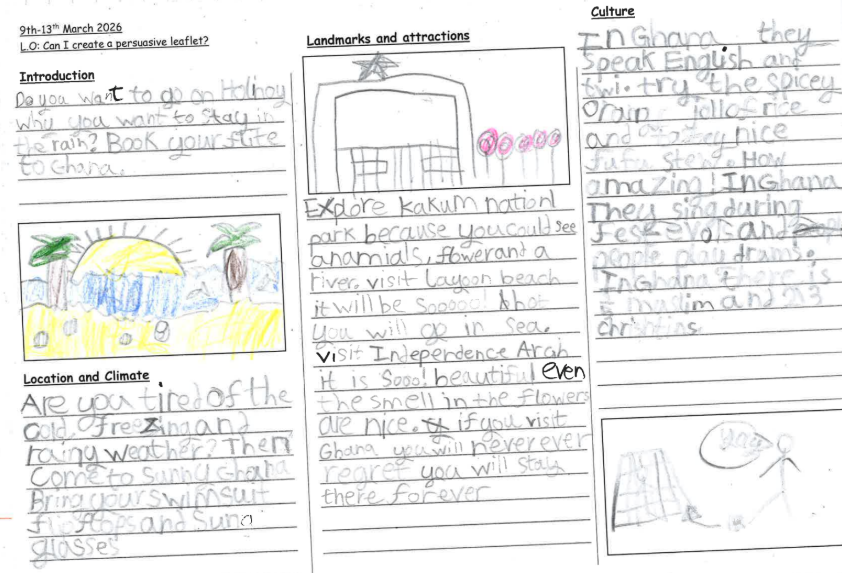 9th-13th March 2026
L.O: Can I create a persuasive leaflet?
Introduction
Do you want to go on Holihoy
why you want to stay in
the rain? Book your flite
to Ghana.
Location and Climate
Are you tired of the
cold, freezing and
rainy weather? Then
Come to sunny Ghana
Bring your swimsuit
flipflops and sun
glasses
Landmarks and attractions
Explore kakum nationl
park because you could see
anamials, flower and a
river. visit Lagoon beach
it will be Sooooo! hot
you will go in sea.
visit Independence Arah
it is Sooo! beautiful even
the smell in the flowers
are nice. if you visit
Ghana you will never ever
regret you will stay
there forever
Culture
In Ghana they
speak English and
twi. try the spicey
jollof rice
and nice
fufu stew. How
amazing! In Ghana
They sing during
festevols and
people play drums.
In Ghana there is
muslim and 2/3
christins